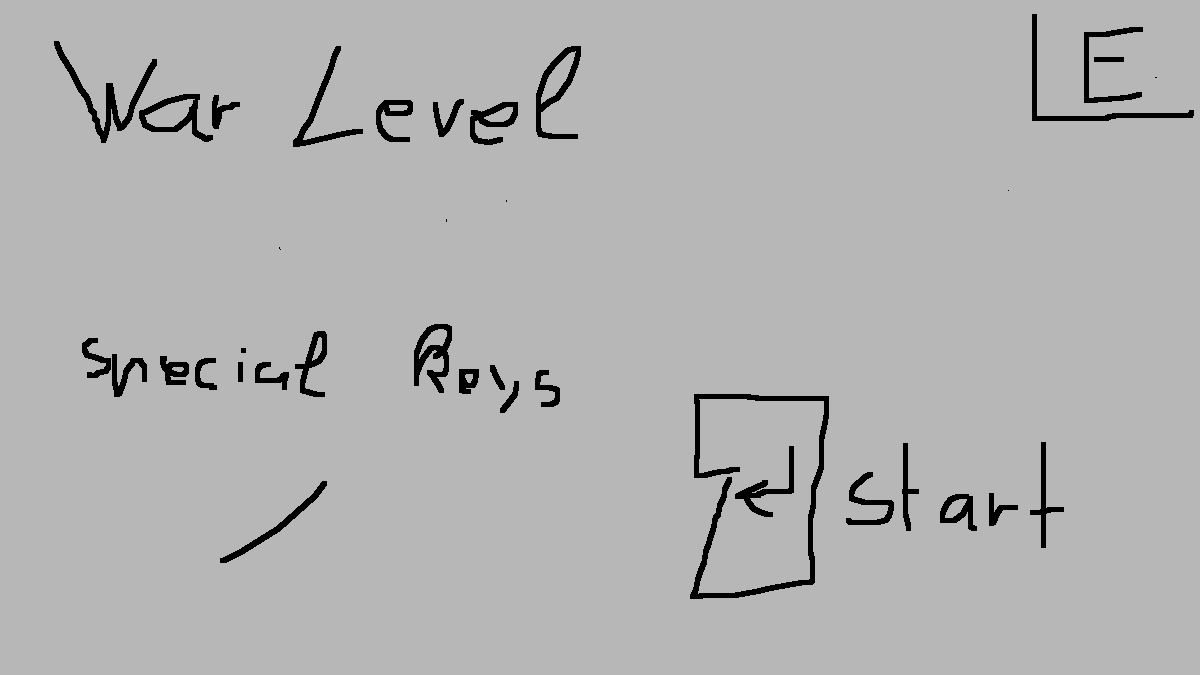 War Level
E
Special Keys
Start